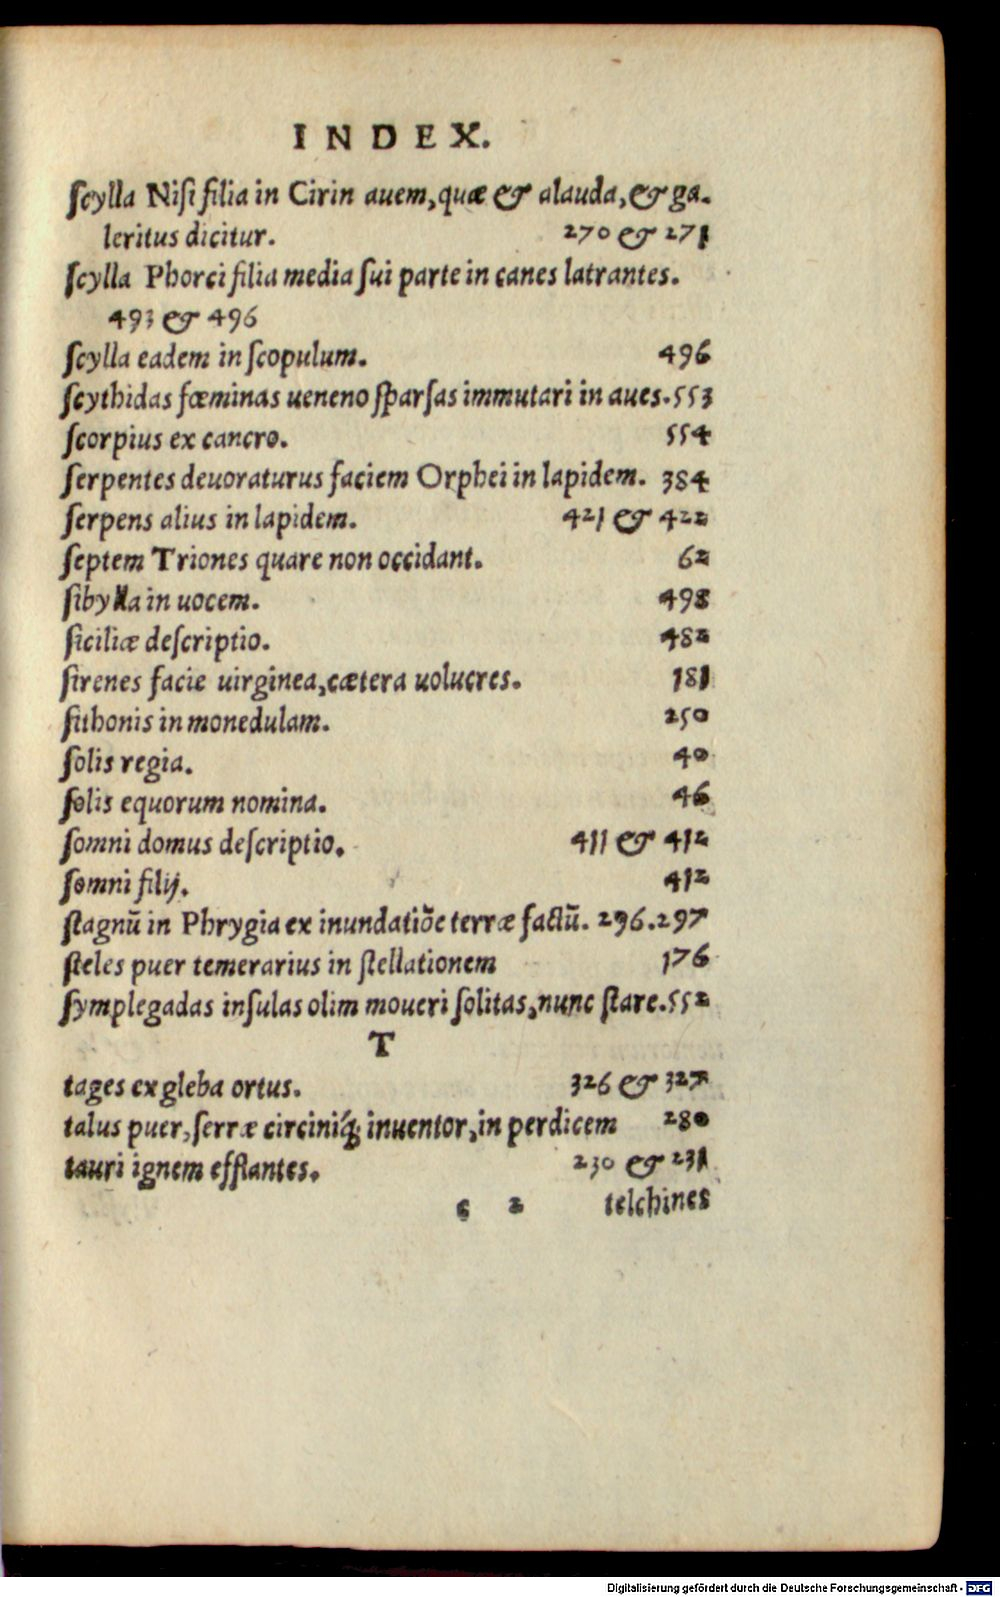 INDEX.
ſcylla Niſi filia in Cirin auem, quæ & alauda, & ga-
leritus dicitur. 270 & 271
ſcylla Phorci filia media ſui parte in canes latrantes.
493 & 496
ſcylla eadem in ſcopulum. 496
ſcythidas fœminas ueneno ſparſas immutari in aues. 553
ſcorpius ex cancro. 554
ſerpentes deuoraturus faciem Orphei in lapidem. 384
ſerpens alius in lapidem. 421 & 422
ſeptem Triones quare non occidant. 62
ſibylla in uocem. 498
ſiciliæ deſcriptio. 482
ſirenes facie uirginea, cætera uolucres. 181
ſithonis in monedulam. 250
ſolis regia. 40
ſolis equorum nomina. 46
ſomni domus deſcriptio. 411 & 412
ſomni filij. 412
ſtagnũ in Phrygia ex inundatiõe terræ factũ. 296.297
ſteles puer temerarius in ſtellationem 176
ſymplegadas inſulas olim moueri ſolitas, nunc ſtare. 552
T
tages ex gleba ortus. 326 & 327
talus puer, ſerræ circiniq́; inuentor, in perdicem 280
tauri ignem efflantes. 230 & 231
c 2 telchines
Digitalisierung gefördert durch die Deutsche Forschungsgemeinschaft - DFG